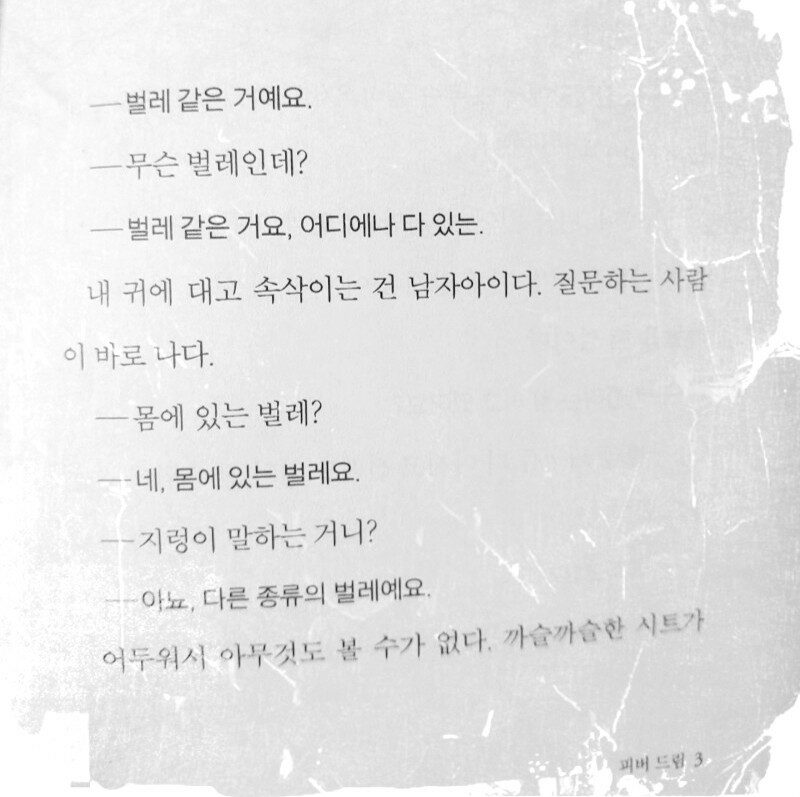 —벌레 같은 거예요.
—무슨 벌레인데?
—벌레 같은 거요, 어디에나 다 있는.
내 귀에 대고 속삭이는 건 남자아이다. 질문하는 사람
이 바로 나다.
—몸에 있는 벌레?
—네, 몸에 있는 벌레요.
—지렁이 말하는 거니?
—아뇨, 다른 종류의 벌레예요.
어두워서 아무것도 볼 수가 없다. 까슬까슬한 시트가
피버 드림 3